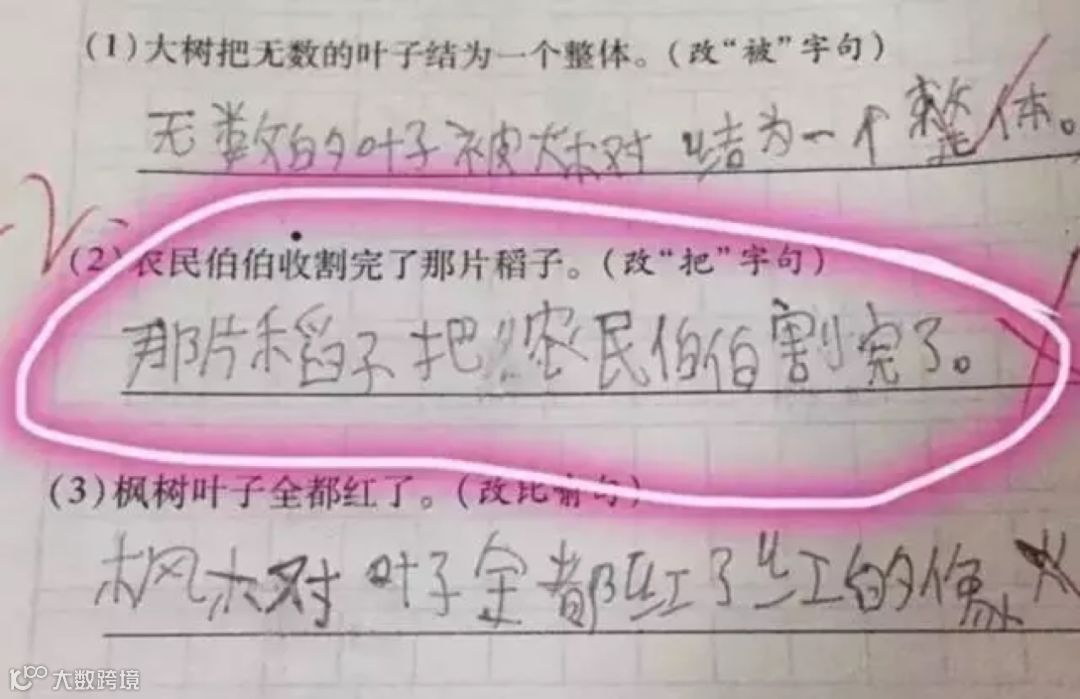 (1)大树把无数的叶子结为一个整体。(改“被”字句)
无数的叶子被大树结为一个整体。
(2)农民伯伯收割完了那片稻子。(改“把”字句)
那片稻子把农民伯伯割完了。
(3)枫树叶子全都红了。(改比喻句)
枫树叶子全都红了红的像火
大数跨境